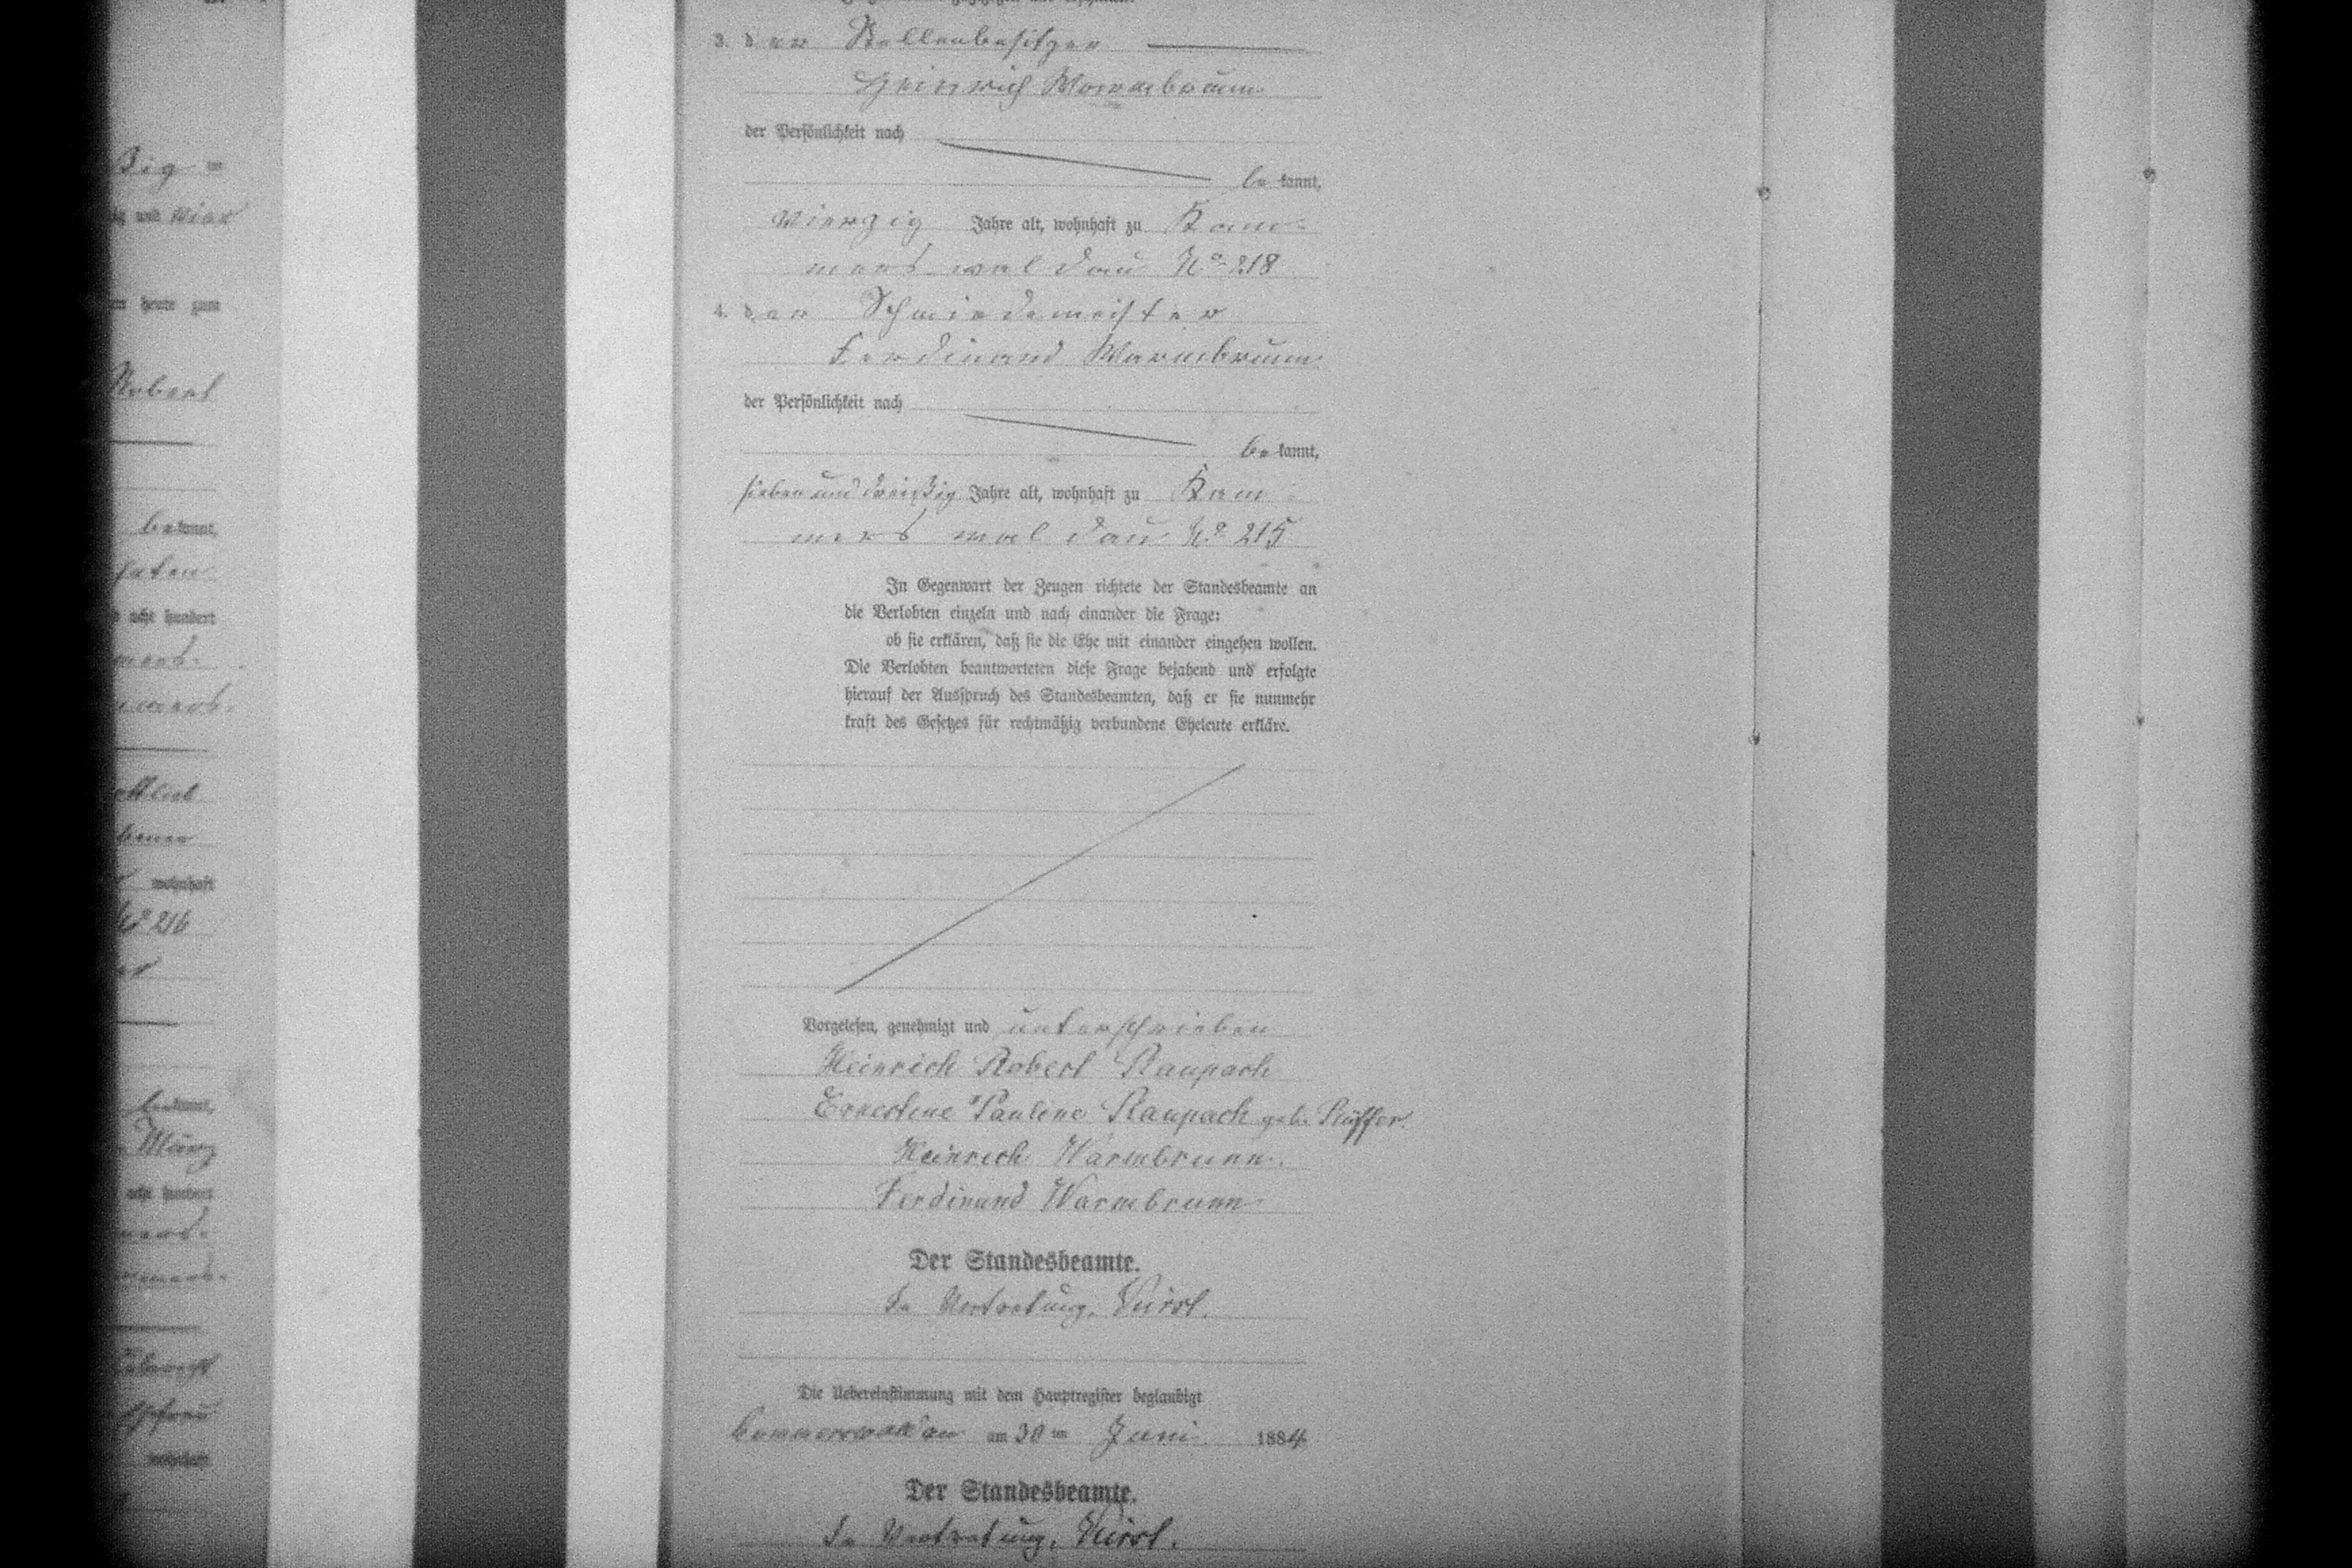 ßig =
und vier
heute zum
Robert
bekannt,
acht hundert
mers-
wohnhaft
No 216
bekannt,
März
acht hundert
wohnhaft
3. der Stellenbesitzer
Heinrich Warmbrunn
der Persönlichkeit nach
be kannt,
vierzig Jahre alt, wohnhaft zu Kam-
mers waldau No 218
4. der Schmiedemeister
Ferdinand Warmbrunn
der Persönlichkeit nach
be kannt,
sieben und dreißig Jahre alt, wohnhaft zu Kam-
mers waldau No 215
In Gegenwart der Zeugen richtete der Standesbeamte an
die Verlobten einzeln und nach einander die Frage:
ob sie erklären, daß sie die Ehe mit einander eingehen wollen.
Die Verlobten beantworteten diese Frage bejahend und erfolgte
hierauf der Ausspruch des Standesbeamten, daß er sie nunmehr
kraft des Gesetzes für rechtmäßig verbundene Eheleute erkläre.
Vorgelesen, genehmigt und unterschrieben
Heinrich Robert Raupach
Ernestine Pauline Raupach geb. Rüffer.
Heinrich Warmbrunn.
Ferdinand Warmbrunn
Der Standesbeamte.
In Vertretung,
Die Uebereinstimmung mit dem Hauptregister beglaubigt
Kammerswaldau am 30 ten Juni 1884
Der Standesbeamte.
In Vertretung,